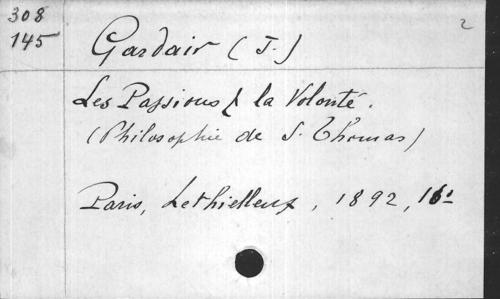 308
145
Gardair (J.)
2
Les Passions & la Volonté.
(Philosophie de S. Thomas)
Paris, Lethielleux, 1892, 16°